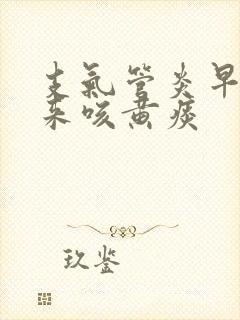 支氣管炎早
來咳黄痰
玖鉴